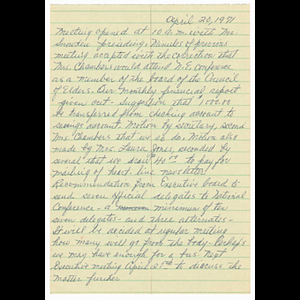 April 20, 1971
Meeting opened at 10 A.M. with Mr.
Snowden presiding. Minutes of previous
meeting accepted with the correction that
Mrs. Chambers would attend N.E. Conference
as a member of the board of the Council
of Elders. Our monthly financial report
given out. Suggestion that $1000.00
be transferred from checking account to
savings account. Motion by secretary, second
Mrs. Chambers that we do so. Motion also
made by Mrs. Laura Jones, seconded by
several that we send to pay for
mailing of heart line newsletter.
Recommendation from Executive board to
send seven official delegates to National
Conference - a minimum of the
seven delegates - and three alternates -
It will be decided at regular meeting
how many will go from the body. Perhaps
we may have enough for a bus. Next
Executive meeting April 27th to discuss the
matter further